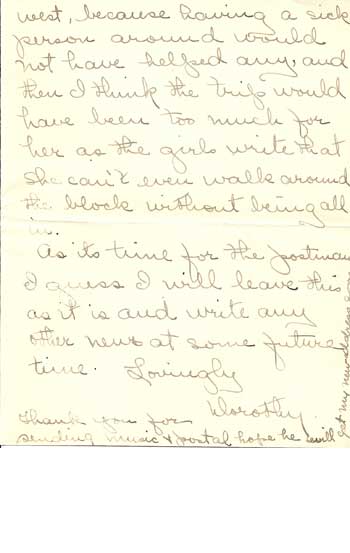 west, because having a sick
person around would
not have helped any; and
then I think the trip would
have been too much for
her as the girls write that
she can't even walk around
the block without being all
in.
As its time for the postman
I guess I will leave this
as it is and write any
other news at some future
time. Lovingly
Dorothy.
Thank you for
sending music & postal hope he will
get my new address